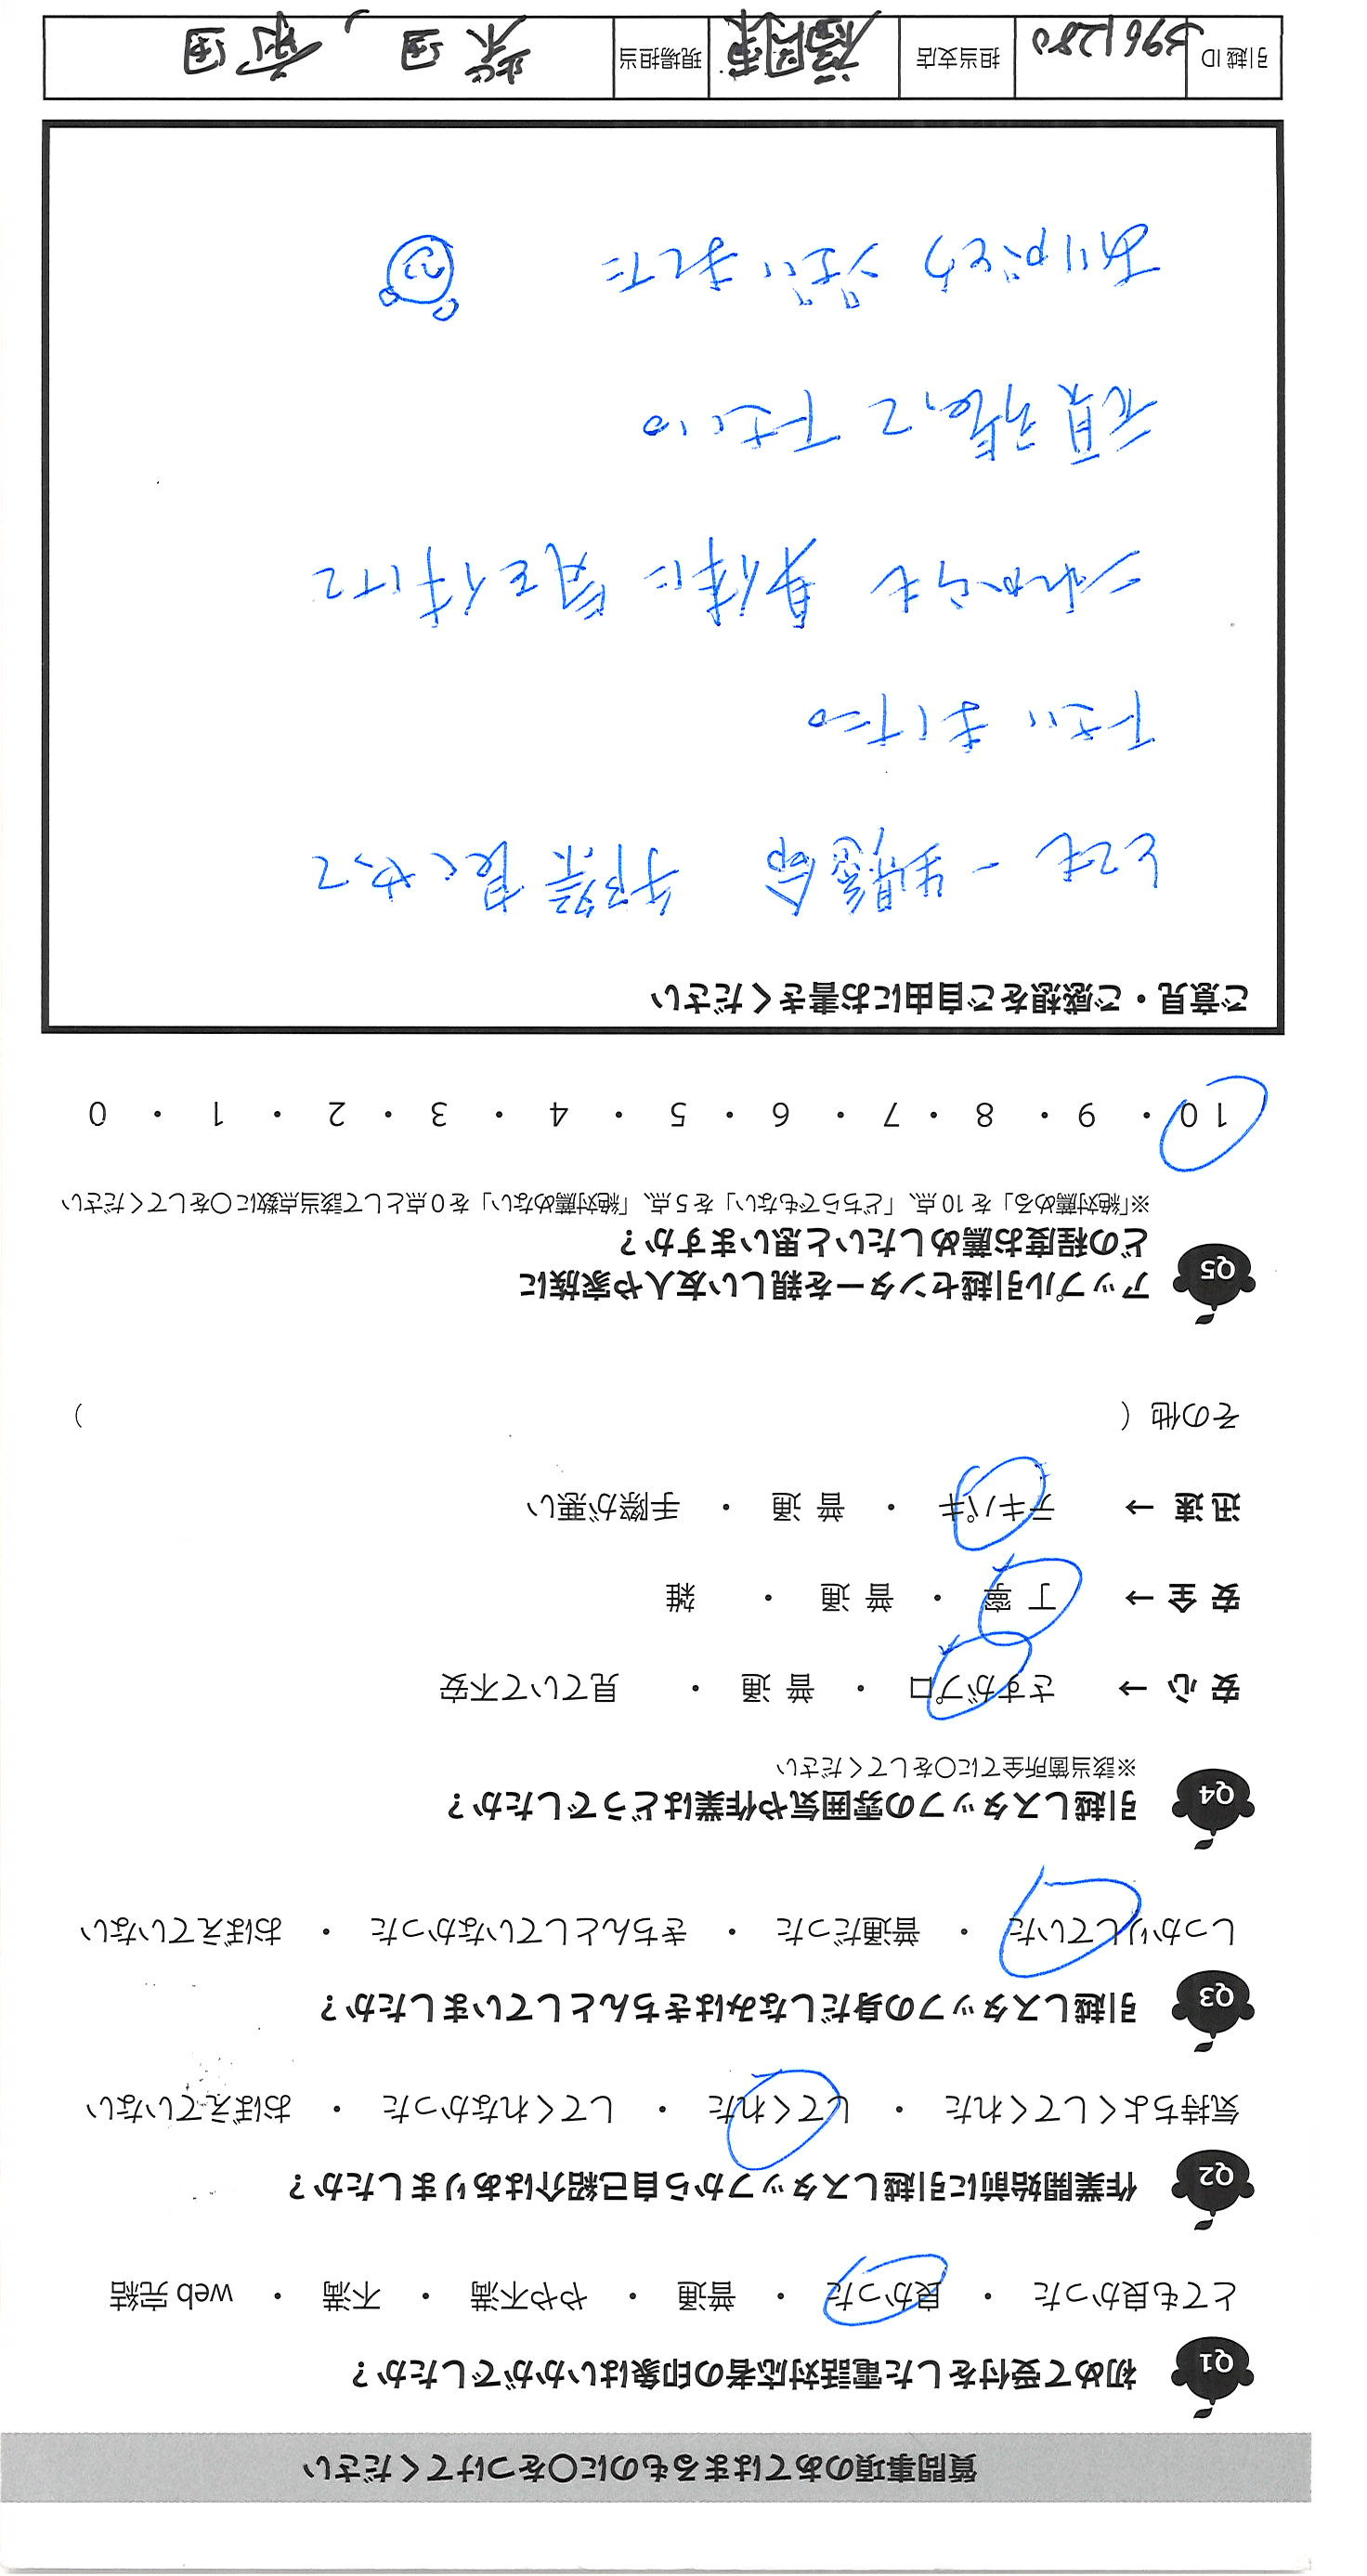 質問事項のあてはまるものに〇をつけてください
Q1 初めて受付をした電話対応者の印象はいかがでしたか？
とても良かった ・ 良かった ・ 普通 ・ やや不満 ・ 不満 ・ web 完結
Q2 作業開始前に引越しスタッフから自己紹介はありましたか？
気持ちよくしてくれた ・ してくれた ・ してくれなかった ・ おぼえていない
Q3 引越しスタッフの身だしなみはきちんとしていましたか？
しっかりしていた ・ 普通だった ・ きちんとしていなかった ・ おぼえていない
Q4 引越しスタッフの雰囲気や作業はどうでしたか？
※該当箇所全てに〇をしてください
安 心 → さすがプロ ・ 普 通 ・ 見ていて不安
安 全 → 丁 寧 ・ 普 通 ・ 雑
迅 速 → テキパキ ・ 普 通 ・ 手際が悪い
その他（ ）
Q5 アップル引越センターを親しい友人や家族に
どの程度お薦めしたいと思いますか？
※「絶対薦める」を 10 点、「どちらでもない」を 5 点、「絶対薦めない」を 0 点として該当点数に〇をしてください
10 ・ 9 ・ 8 ・ 7 ・ 6 ・ 5 ・ 4 ・ 3 ・ 2 ・ 1 ・ 0
ご意見・ご感想をご自由にお書きください
とても一生懸命 手際良くやって
下さいました。
これからも 身体に気を付けて
頑張って下さい。
ありがとうございました
引越 ID 3961280 担当支店 福岡東 現場担当